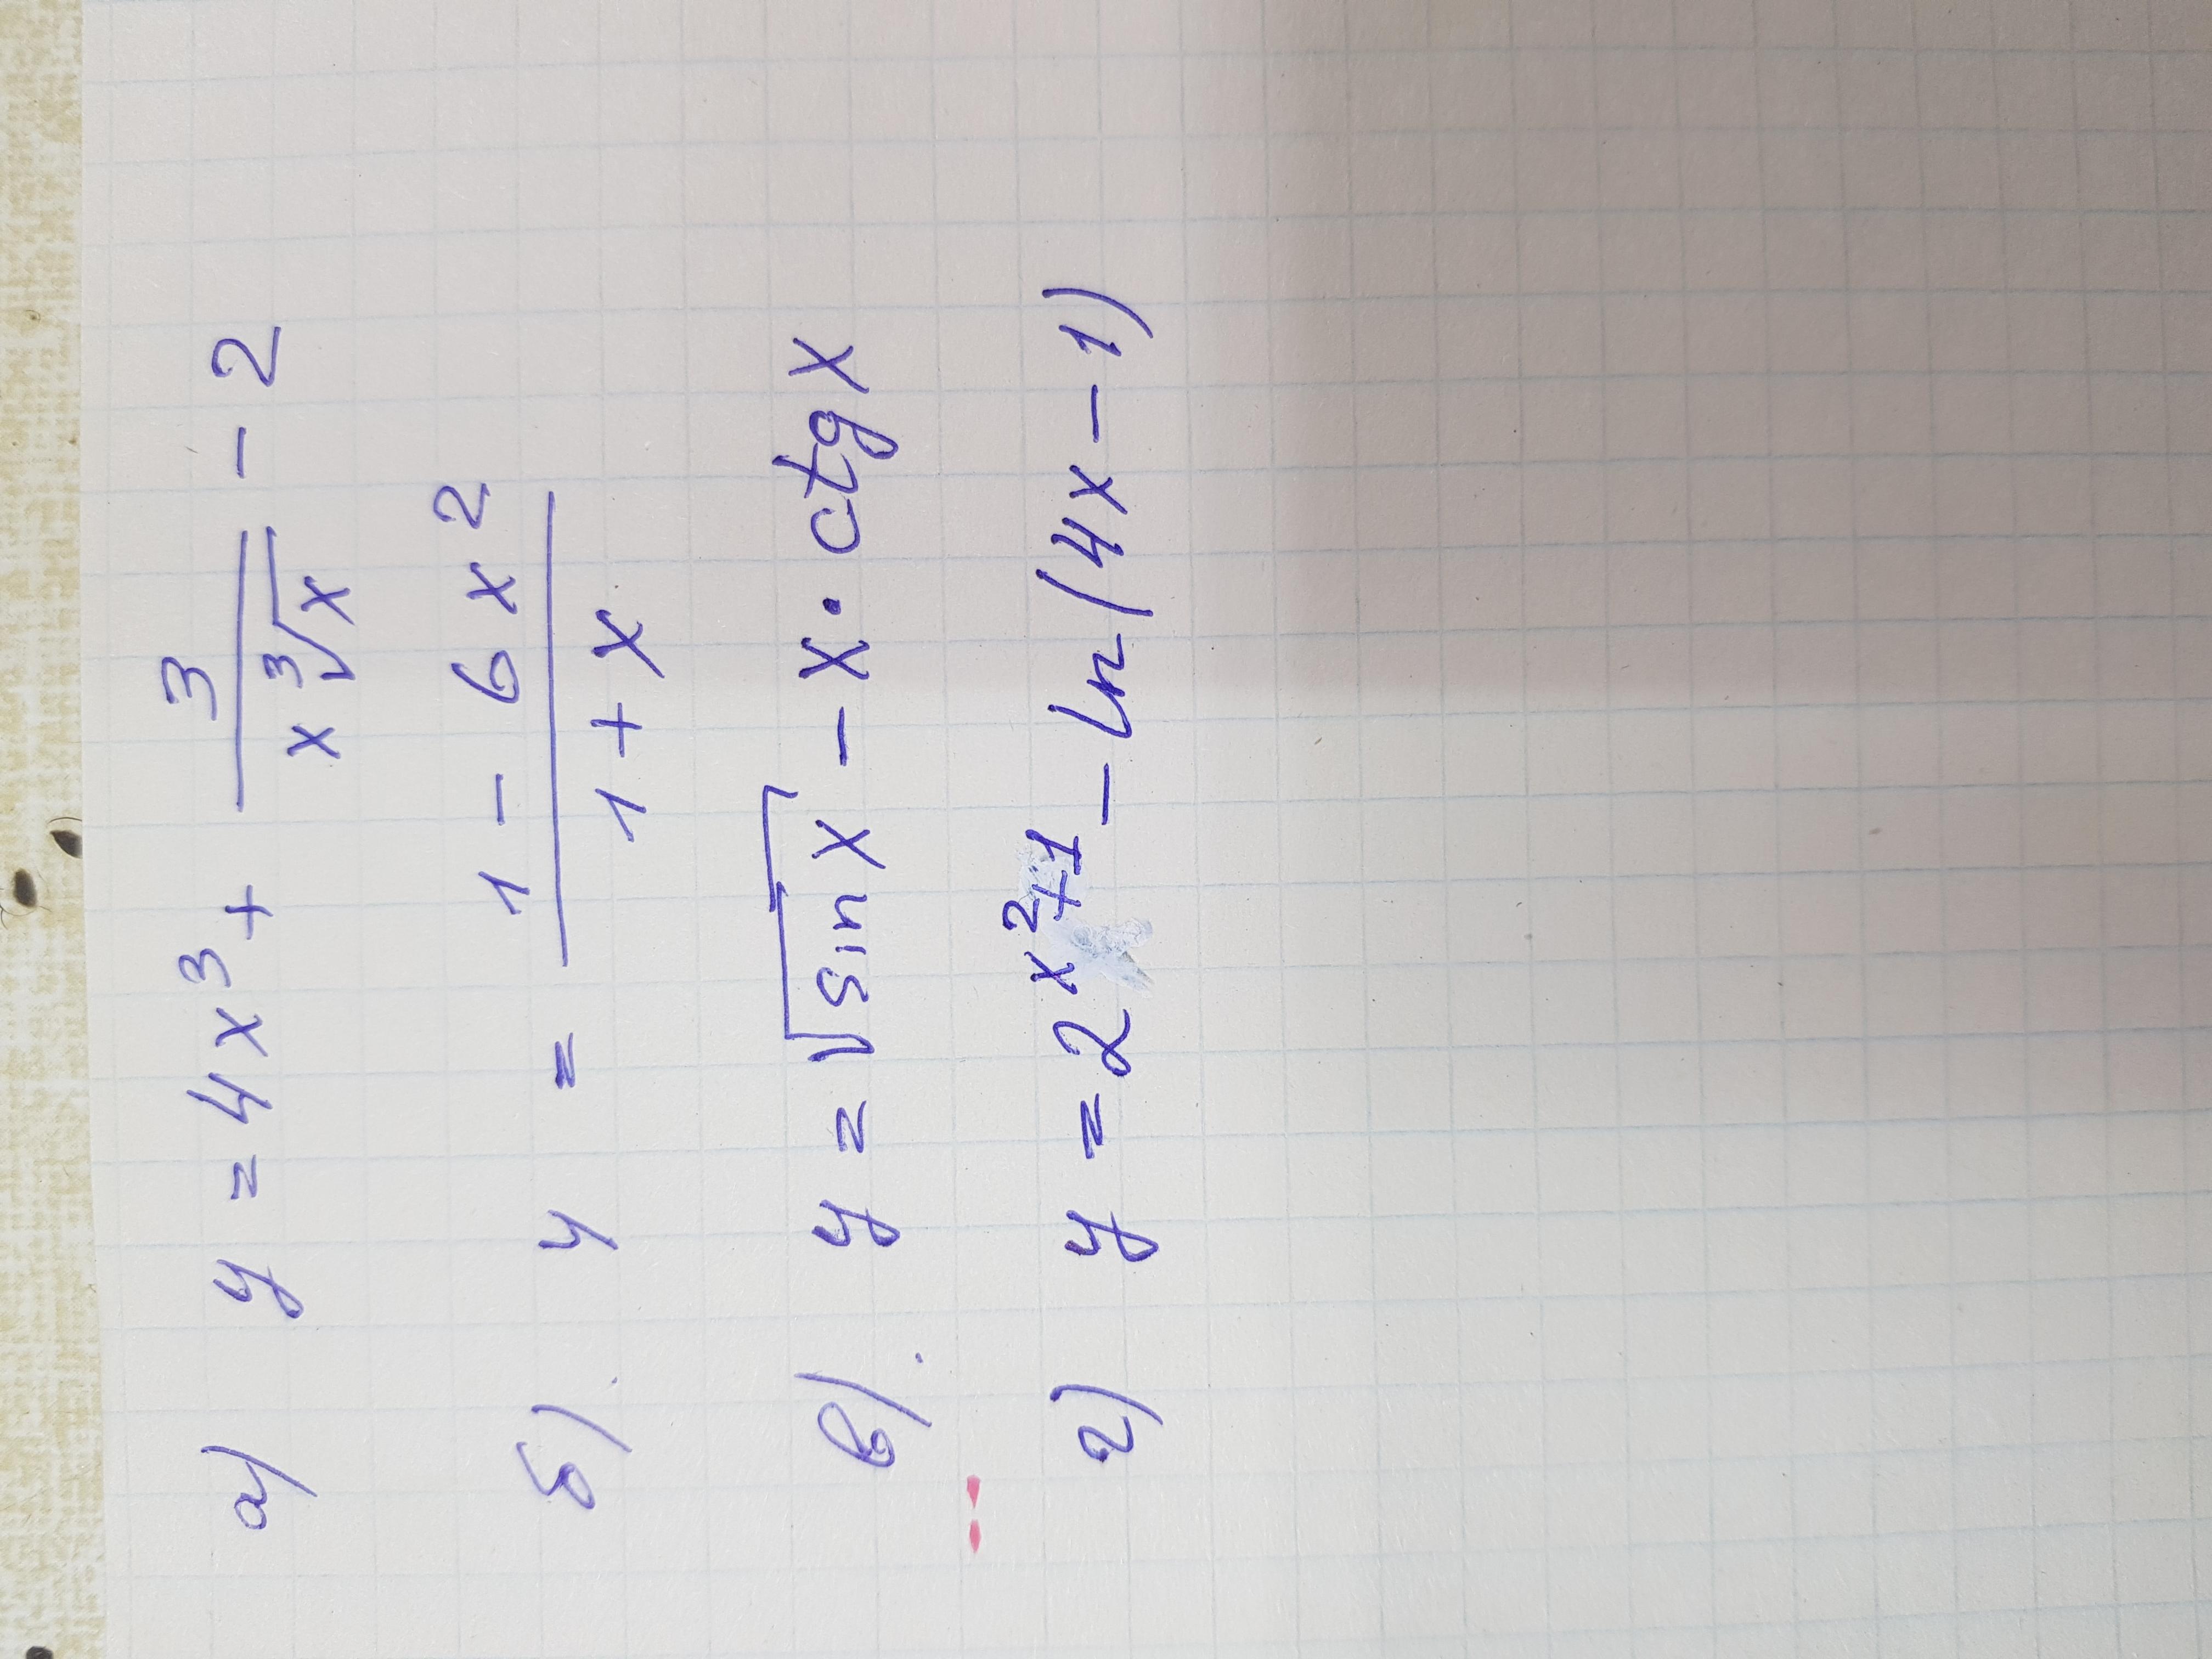 а) y = 4x³ + 3/(x ∛x) − 2
б). y = (1 − 6x²)/(1 + x)
в). y = √(sin x) − x · ctg x
г) y = 2^(x²+1) − ln(4x − 1)